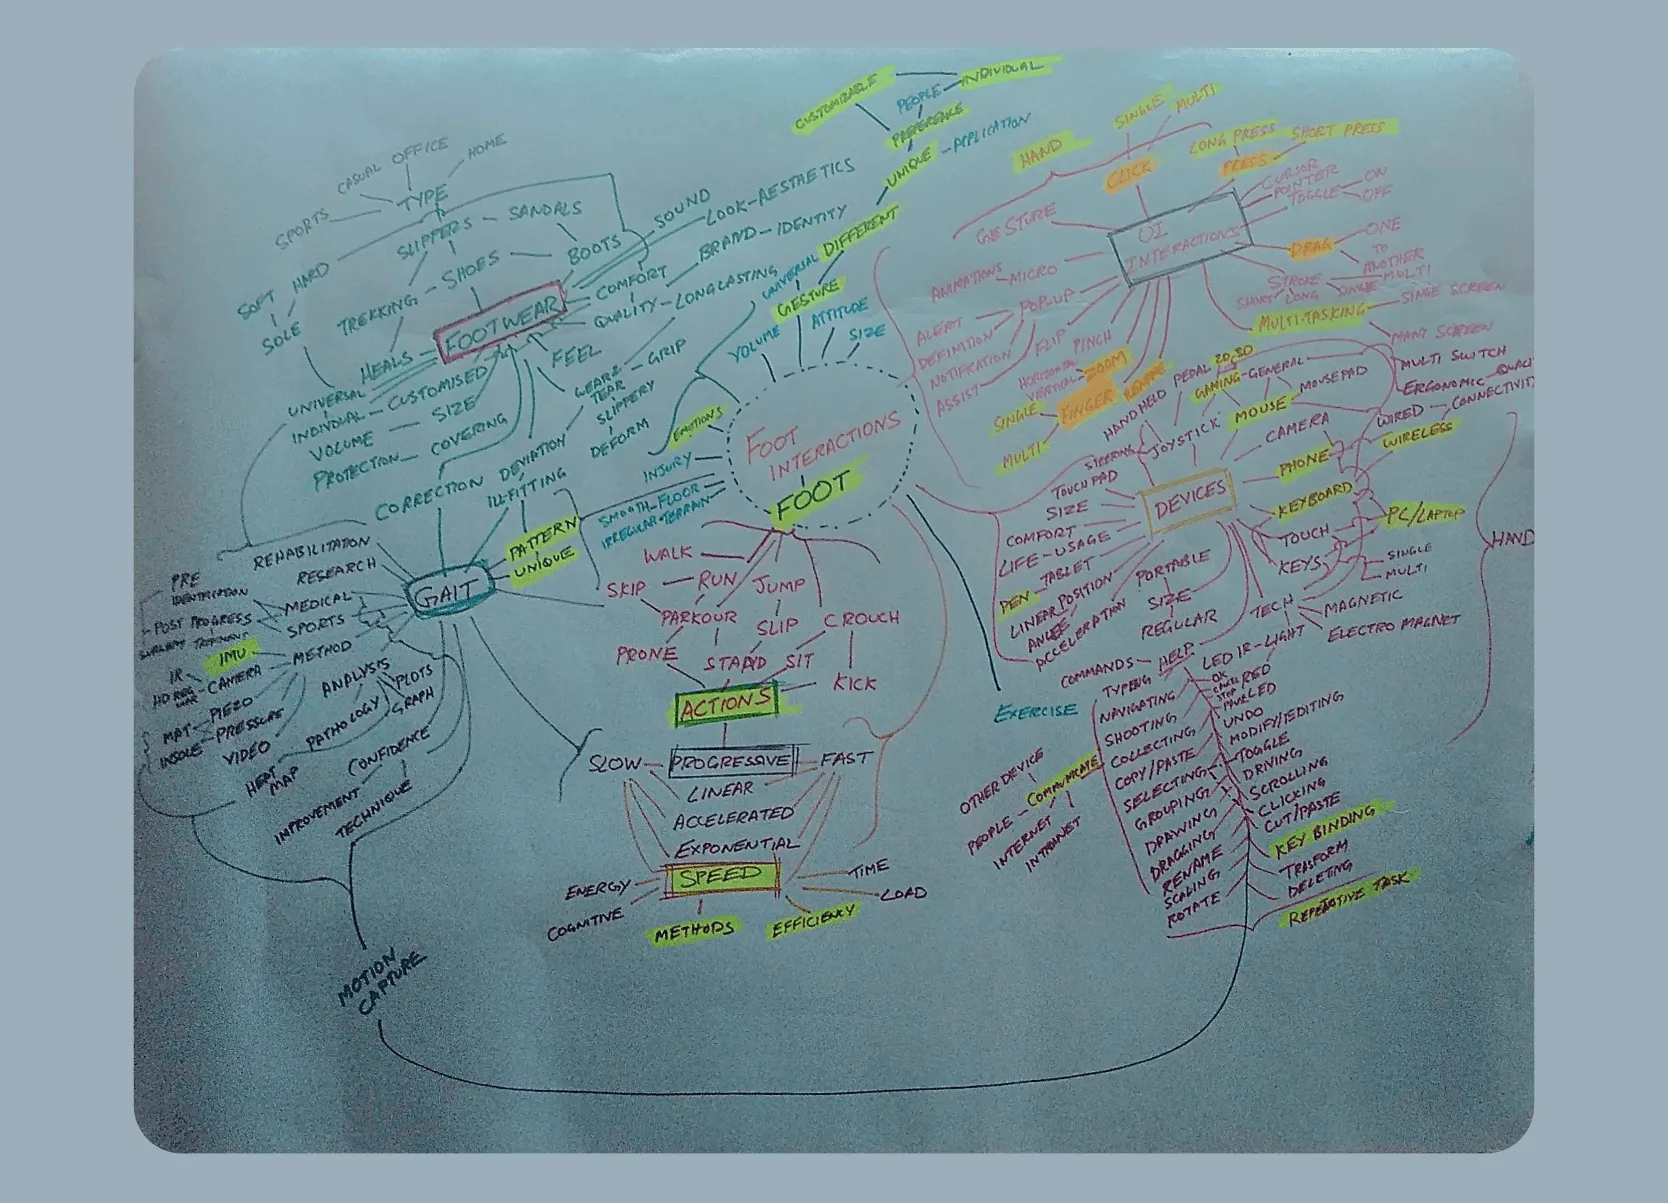 CUSTOMIZABLE
PEOPLE
INDIVIDUAL
PREFERENCE
UNIQUE - APPLICATION
DIFFERENT
UNIVERSAL
GESTURE
VOLUME
ATTITUDE
SIZE
EMOTIONS
INJURY
SMOOTH FLOOR
IRREGULAR TERRAIN
FOOT
INTERACTIONS
FOOT
CASUAL
OFFICE
HOME
SPORTS
TYPE
SLIPPERS - SANDALS
SOFT
HARD
SOLE
TREKKING - SHOES - BOOTS
HEALS
FOOTWEAR
SOUND
LOOK - AESTHETICS
BRAND - IDENTITY
COMFORT
QUALITY - LONGLASTING
FEEL
GRIP
WEAR &
TEAR
SLIPPERY
DEFORM
UNIVERSAL
INDIVIDUAL - CUSTOMISED
VOLUME - SIZE
PROTECTION - COVERING
CORRECTION
DEVIATION
ILL-FITTING
PATTERN
UNIQUE
GAIT
REHABILITATON
RESEARCH
PRE
IDENTIFICATION
POST PROGRESS
MEDICAL
SPORTS
METHOD
IMU
IR
CAMERA
MAT
PIEZO
INSOLE - PRESSURE
VIDEO
HEAT
MAP
ANALYSIS
PLOTS
GRAPH
PATHOLOGY
CONFIDENCE
IMPROVEMENT
TECHNIQUE
MOTION
CAPTURE
WALK
SKIP - RUN
JUMP
PARKOUR
SLIP
CROUCH
PRONE
STAND
SIT
KICK
ACTIONS
SLOW - PROGRESSIVE - FAST
LINEAR
ACCELERATED
EXPONENTIAL
SPEED
ENERGY
COGNITIVE
METHODS
EFFICIENCY
TIME
LOAD
EXERCISE
HAND
SINGLE
MULTI
CLICK
LONG PRESS
SHORT PRESS
PRESS
GESTURE
UI
INTERACTIONS
CURSOR
POINTER
TOGGLE
ON
OFF
DRAG
ONE
TO
ANOTHER
STROKE
SHORT
LONG
SINGLE
MULTI
MULTI-TASKING
SINGE SCREEN
MANY SCREEN
ANIMATIONS - MICRO
POP-UP
ALERT
DEFINITION
NOTIFICATION
ASSIST
FLIP
PINCH
HORIZONTAL
VERTICAL
ZOOM
SINGLE
FINGER
MULTI
RENAME
HANDHELD
PEDAL
2D, 3D
GAMING - GENERAL
MOUSEPAD
MOUSE
JOYSTICK
STEERING
CAMERA
MULTI SWITCH
ERGONOMIC
WIRED - CONNECTIVITY
WIRELESS
PHONE
KEYBOARD
PC/LAPTOP
TOUCH
KEYS
SINGLE
MULTI
DEVICES
TOUCH PAD
SIZE
COMFORT
LIFE - USAGE
PEN - TABLET
LINEAR POSITION
ANGLE
ACCELERATION
PORTABLE
SIZE
REGULAR
TECH
MAGNETIC
ELECTRO MAGNET
LIGHT
LED IR
RED
HAND
COMMANDS - HELP
TYPING
OK
NAVIGATING
SHOOTING
UNDO
COLLECTING
MODIFY/EDITING
COPY/PASTE
TOGGLE
SELECTING
DRIVING
GROUPING
SCROLLING
DRAWING
CLICKING
DRAGGING
CUT/PASTE
RENAME
KEY BINDING
SCALING
TRASFORM
ROTATE
DELETING
REPETATIVE TASK
OTHER DEVICE
COMMUNICATE
PEOPLE
INTERNET
INTRANET